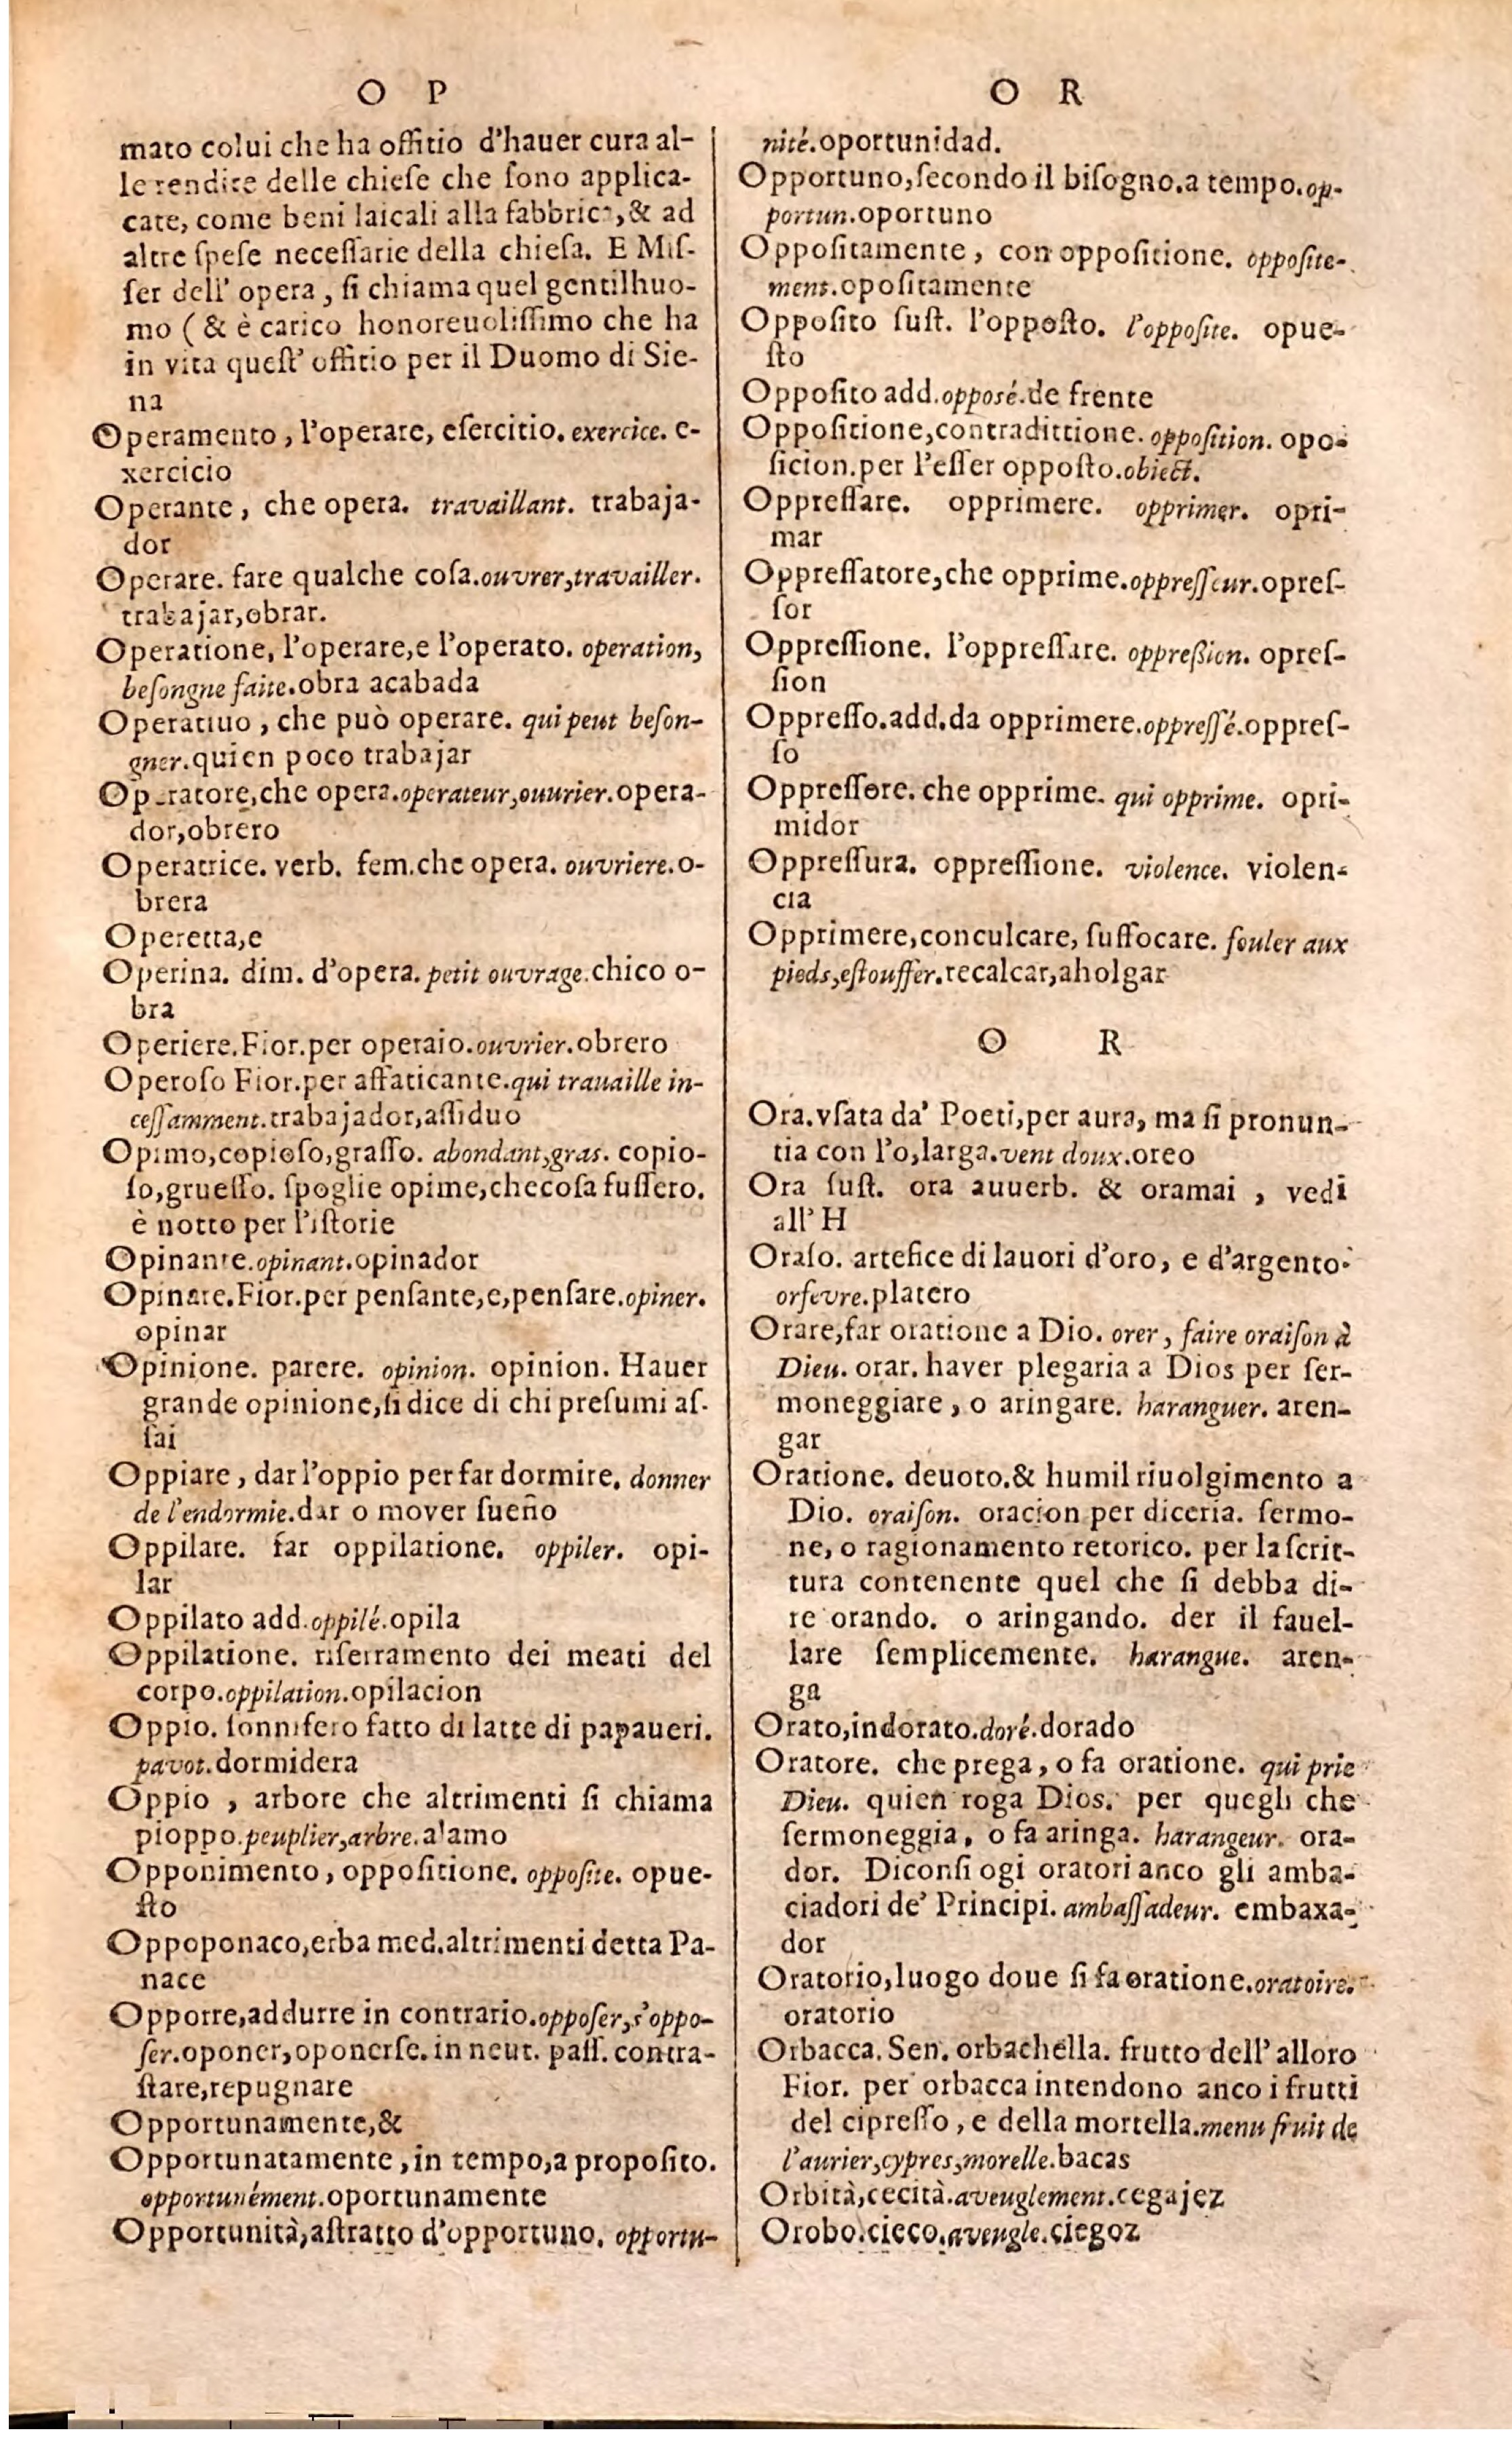 O P
mato colui che ha offitio d'hauer cura al-
le rendite delle chiese che sono applica-
cate, come beni laicali alla fabbrica,& ad
altre spese necessarie della chiesa. E Mis-
ser dell' opera, si chiama quel gentilhuo-
mo (& è carico honoreuolissimo che ha
in vita quest' offitio per il Duomo di Sie-
na
Operamento, l'operare, esercitio. exercice. e-
xercicio
Operante, che opera. travaillant. trabaja-
dor
Operare. fare qualche cosa.ouvrer,travailler.
trabajar,obrar.
Operatione, l'operare,e l'operato. operation,
besongne faite.obra acabada
Operatiuo, che può operare. qui peut beson-
gner.quien poco trabajar
Operatore,che opera.operateur,ouurier.opera-
dor,obrero
Operatrice. verb. fem.che opera. ouvriere.o-
brera
Operetta,e
Operina. dim. d'opera.petit ouvrage.chico o-
bra
Operiere.Fior.per operaio.ouvrier.obrero
Operoso Fior.per affaticante.qui trauaille in-
cessamment.trabajador,assiduo
Opimo,copioso,grasso. abondant,gras. copio-
so,gruesso. spoglie opime,checosa fussero.
è notto per l'istorie
Opinante.opinant.opinador
Opinare.Fior.per pensante,e,pensare.opiner.
opinar
Opinione. parere. opinion. opinion. Hauer
grande opinione,si dice di chi presumi as-
sai
Oppiare, dar l'oppio per far dormire. donner
de l'endormie.dar o mover sueño
Oppilare. far oppilatione. oppiler. opi-
lar
Oppilato add.oppilé.opila
Oppilatione. riserramento dei meati del
corpo.oppilation.opilacion
Oppio. sonnifero fatto di latte di papaueri.
pavot.dormidera
Oppio, arbore che altrimenti si chiama
pioppo.peuplier,arbre.alamo
Opponimento, oppositione. opposite. opue-
sto
Oppoponaco,erba med.altrimenti detta Pa-
nace
Opporre,addurre in contrario.opposer,s'oppo-
ser.oponer,oponerse.in neut. pass. contra-
stare,repugnare
Opportunamente,&
Opportunatamente, in tempo,a proposito.
opportunément.oportunamente
Opportunità,astratto d'opportuno. opportu-
O R
nité.oportunidad.
Opportuno,secondo il bisogno.a tempo.op-
portun.oportuno
Oppositamente, con oppositione. opposite-
ment.opositamente
Opposito sust. l'opposto. l'opposite. opue-
sto
Opposito add.opposé.de frente
Oppositione,contradittione. opposition. opo-
sicion.per l'esser opposto.obiect.
Oppressare. opprimere. opprimer. opri-
mar
Oppressatore,che opprime.oppresseur.opres-
sor
Oppressione. l'oppressare. oppression. opres-
sion
Oppresso.add.da opprimere.oppressé.oppres-
so
Oppressore. che opprime. qui opprime. opri-
midor
Oppressura. oppressione. violence. violen-
cia
Opprimere,conculcare, suffocare. fouler aux
pieds,estouffer.recalcar,aholgar
O R
Ora.vsata da' Poeti,per aura, ma si pronun-
tia con l'o,larga.vent doux.oreo
Ora sust. ora auuerb. & oramai, vedi
all' H
Oraso. artefice di lauori d'oro, e d'argento.
orfevre.platero
Orare,far oratione a Dio. orer, faire oraison à
Dieu. orar. haver plegaria a Dios per ser-
moneggiare, o aringare. haranguer. aren-
gar
Oratione. deuoto.& humil riuolgimento a
Dio. oraison. oracion per diceria. sermo-
ne, o ragionamento retorico. per la scrit-
tura contenente quel che si debba di-
re orando. o aringando. der il fauel-
lare semplicemente. harangue. aren-
ga
Orato,indorato.doré.dorado
Oratore. che prega, o fa oratione. qui prie
Dieu. quien roga Dios. per quegli che
sermoneggia, o fa aringa. harangeur. ora-
dor. Diconsi ogi oratori anco gli amba-
ciadori de' Principi. ambassadeur. embaxa-
dor
Oratorio,luogo doue si fa oratione.oratoire.
oratorio
Orbacca. Sen. orbachella. frutto dell' alloro
Fior. per orbacca intendono anco i frutti
del cipresso, e della mortella.menu fruit de
l'aurier,cypres,morelle.bacas
Orbità,cecità.aveuglement.cegajez
Orobo.cieco.aveugle.ciegoz